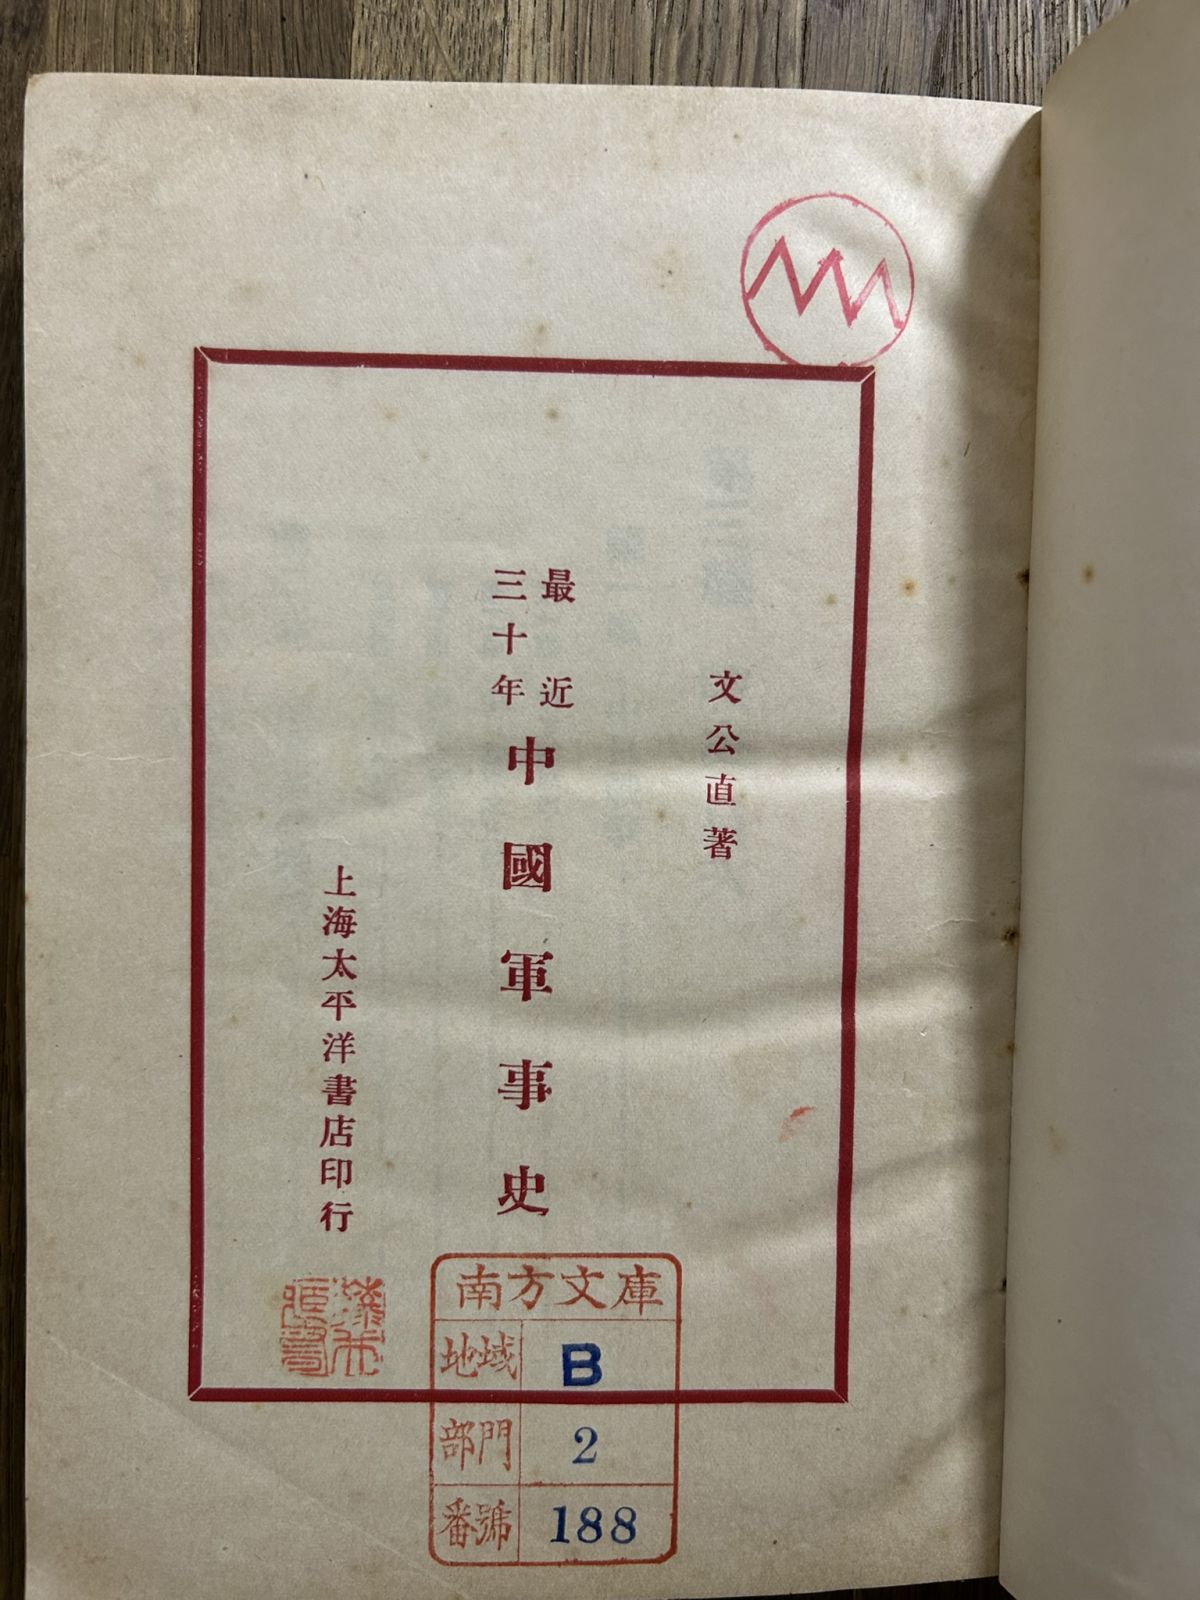 文公直著
最近
三十年
中國軍事史
上海太平洋書店印行
南方文庫
地域 B
部門 2
番號 188